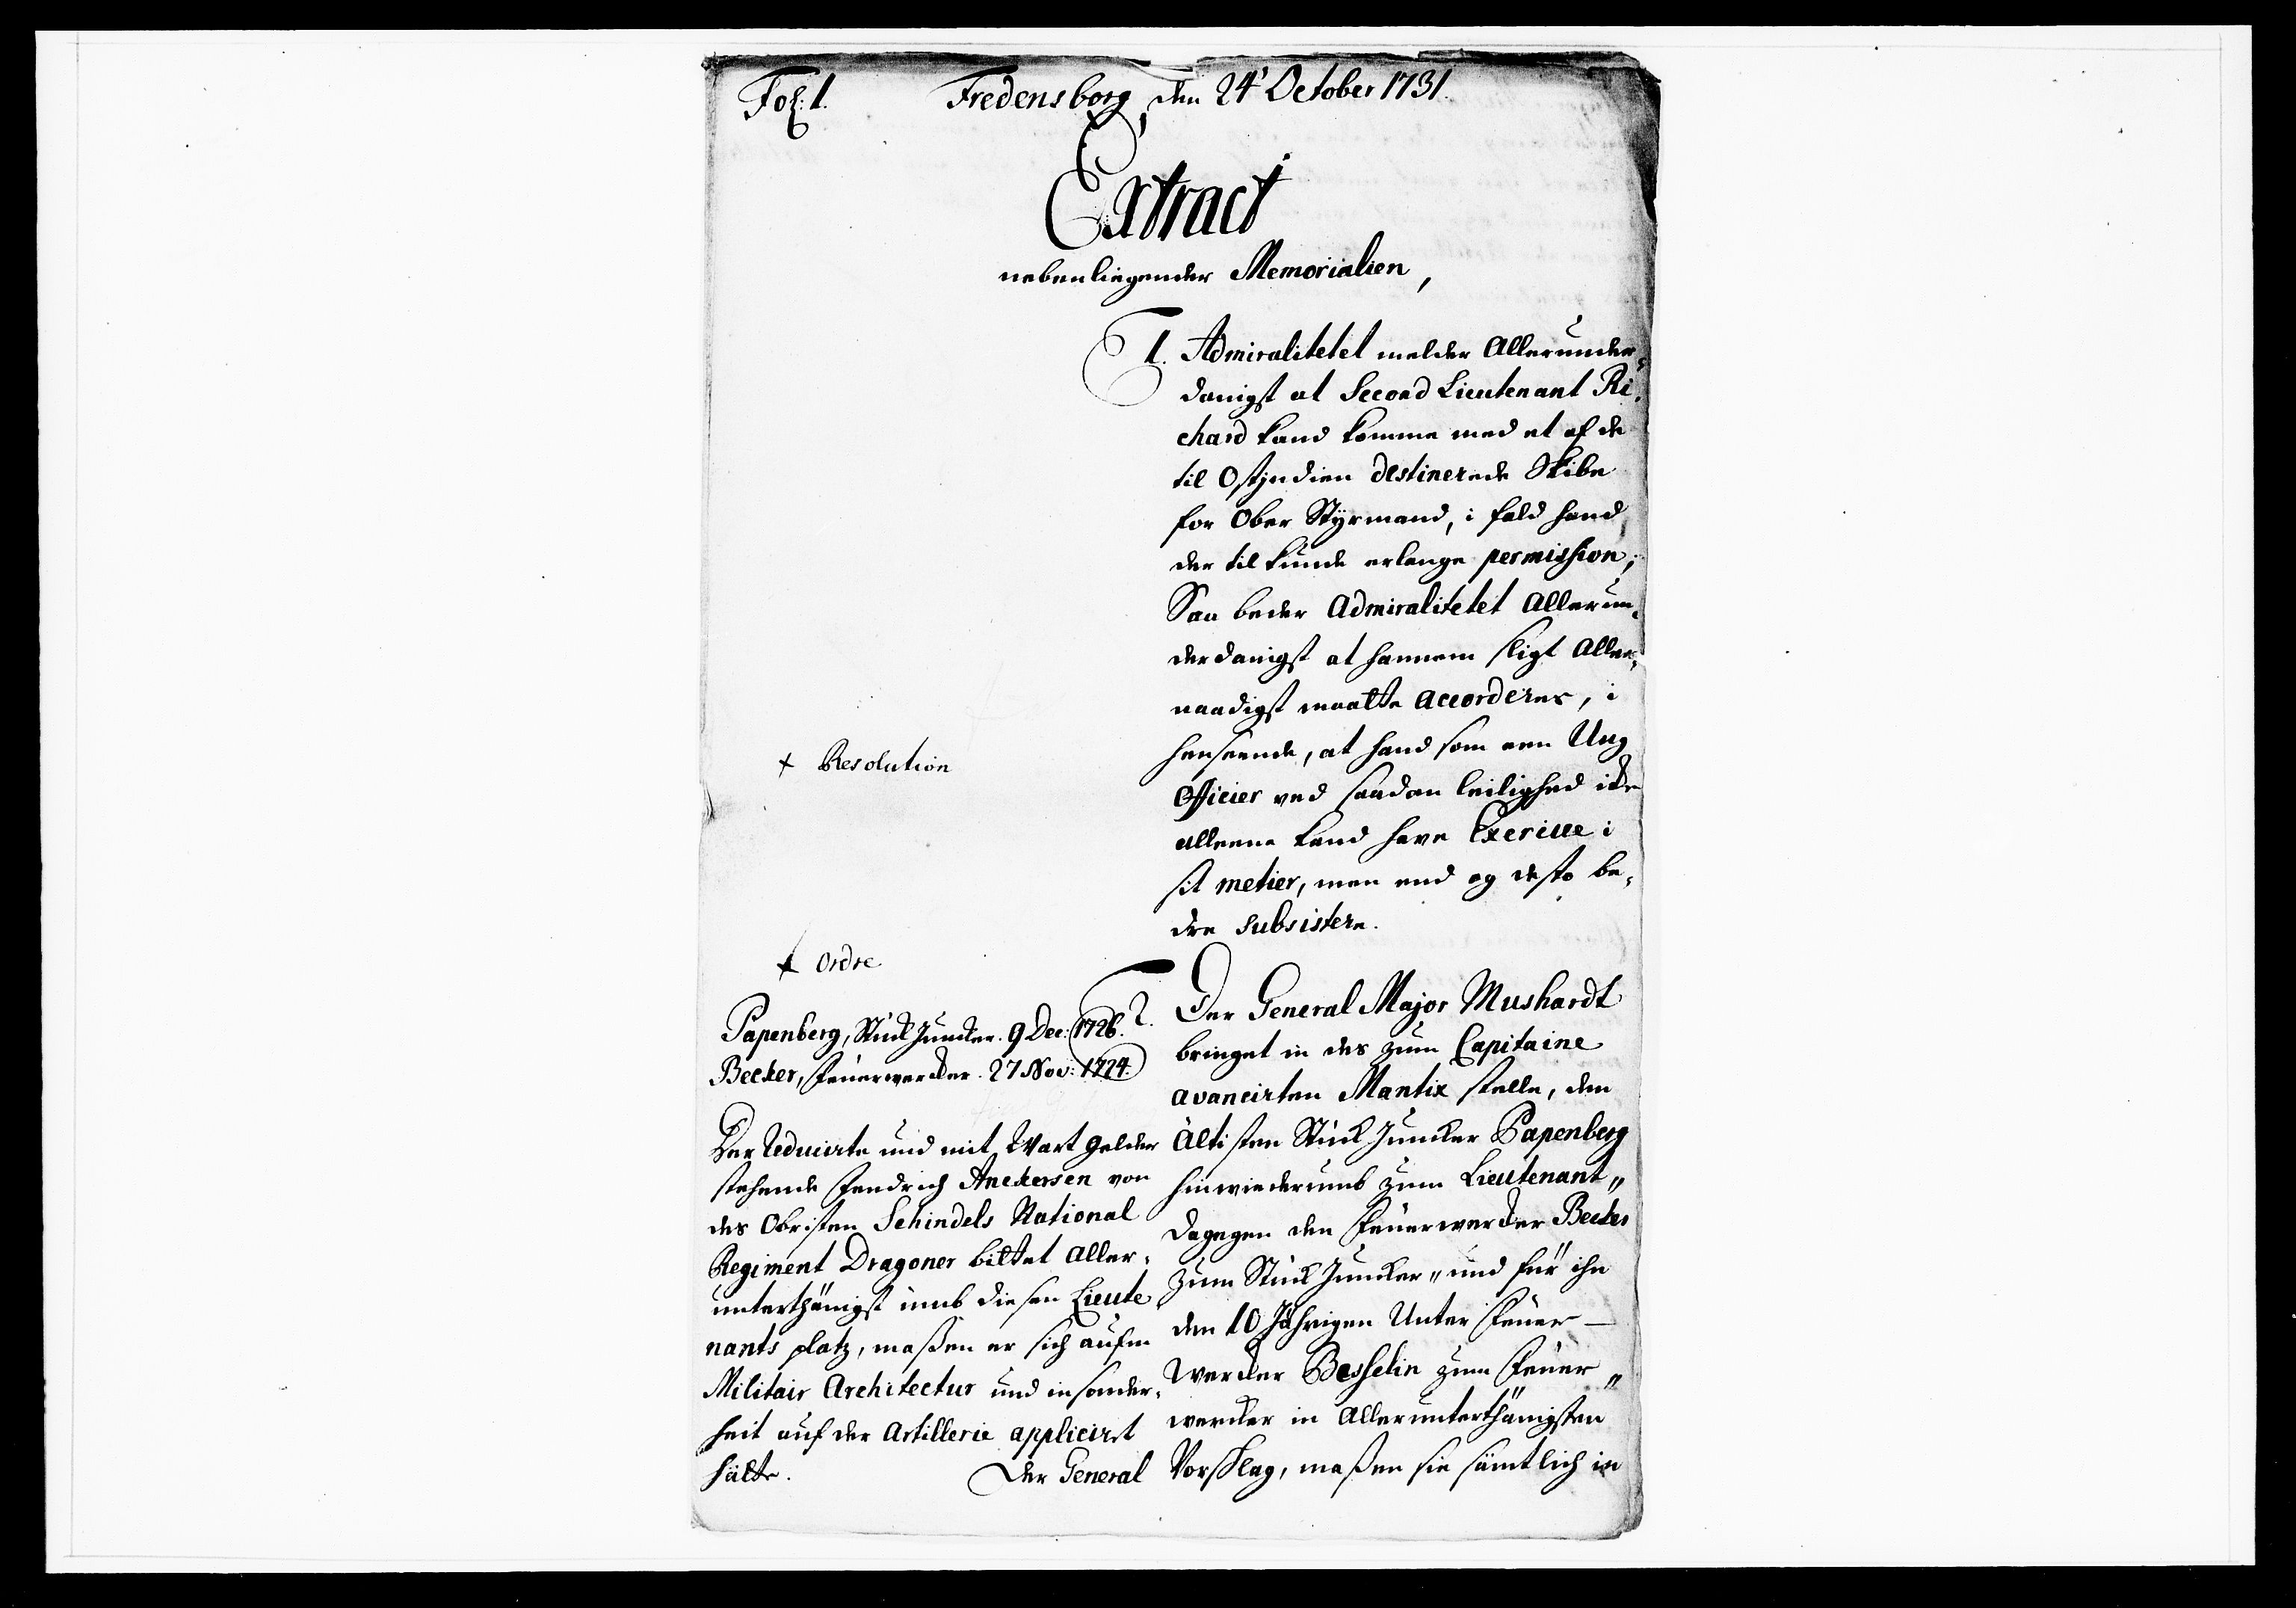 Fol: 1.
Fredensborg, den 24' October 1731.
Extract
nebenliegender Memorialien,
1. Admiralitetet melder Allerunder-
danigst at Second Lieutenant Ri-
chard kand komme med et af de
til Ostjndien destinerede Skibe
for Ober Styrmand, i fald hand
der til kunde erlange permission;
Saa beder Admiralitetet Allerun-
derdanigst at hannem sligt Aller-
naadigst maatte accorderes, i
henseende, at hand som een Ung
Officier ved saadan leilighed icke
alleene kand have Exercice i
sit metier, men end og desto be-
dre subsistere.
+ Resolution
+ Ordre
2. Der General Major Mushardt
bringet in des zum Capitaine
avancirten Mantix stelle, den
Ältisten Stück Juncker Papenberg
hinwiederumb zum Lieutenant„
dagegen den Feuerwercker Becker
zum Stück Juncker„ und für ihn
den 10 Jährigen Unter Feuer-
wercker Besselin zum Feuer„
wercker in Allerunterthänigsten
Vorschlag, maßen sie sämtlich in
Papenberg, Stück Juncker. 9 Dec: 1726.
Becker, Feuerwercker. 27 Nov: 1724.
Der Reducirte und mit Wart gelder
stehende Fendrich Anckersen von
des Obristen Schindels National
Regiment Dragoner bittet Aller-
unterthänigst umb diesen Lieute
nants platz, maßen er sich aufm
Militair Architectur und insonder-
heit auf der Artillerie applicirt
hätte.
Der General